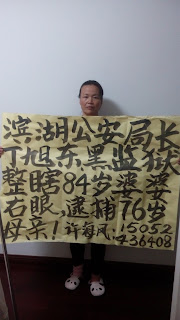 滨湖公安局长
丁旭东黑监狱
整瞎84岁婆婆
右眼,逮捕76岁
母亲!许海凤:15052
436408